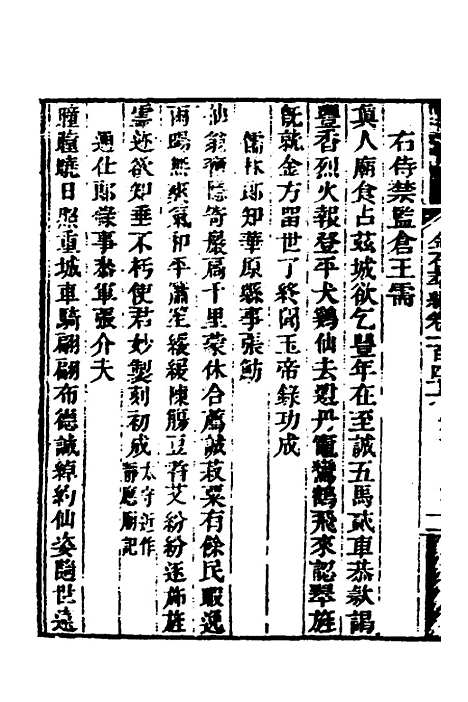 右侍禁監倉王需
真人廟食占茲城欲乞豐年在至誠五馬貳車恭款謁
豐香烈火報登平犬鷄仙去遺丹竈鸞鶴飛來認翠旌
旣就金方留世了終聞玉帝錄功成
儒林郎知華原縣事張魴
仙翁 隱 巖高千里蒙休合薦誠菽粟有餘民暇逸
雨暘無 氣和平蕭 緩緩陳觴豆 艾紛紛 飾旌
靈迹欲知垂不朽使君妙製刻初成太守近作靜應廟記
通仕郎錄事叅軍張介夫
曈曨曉日照重城車騎翩翩布德誠綽約仙姿隨世遠
金石萃編卷一百四十六